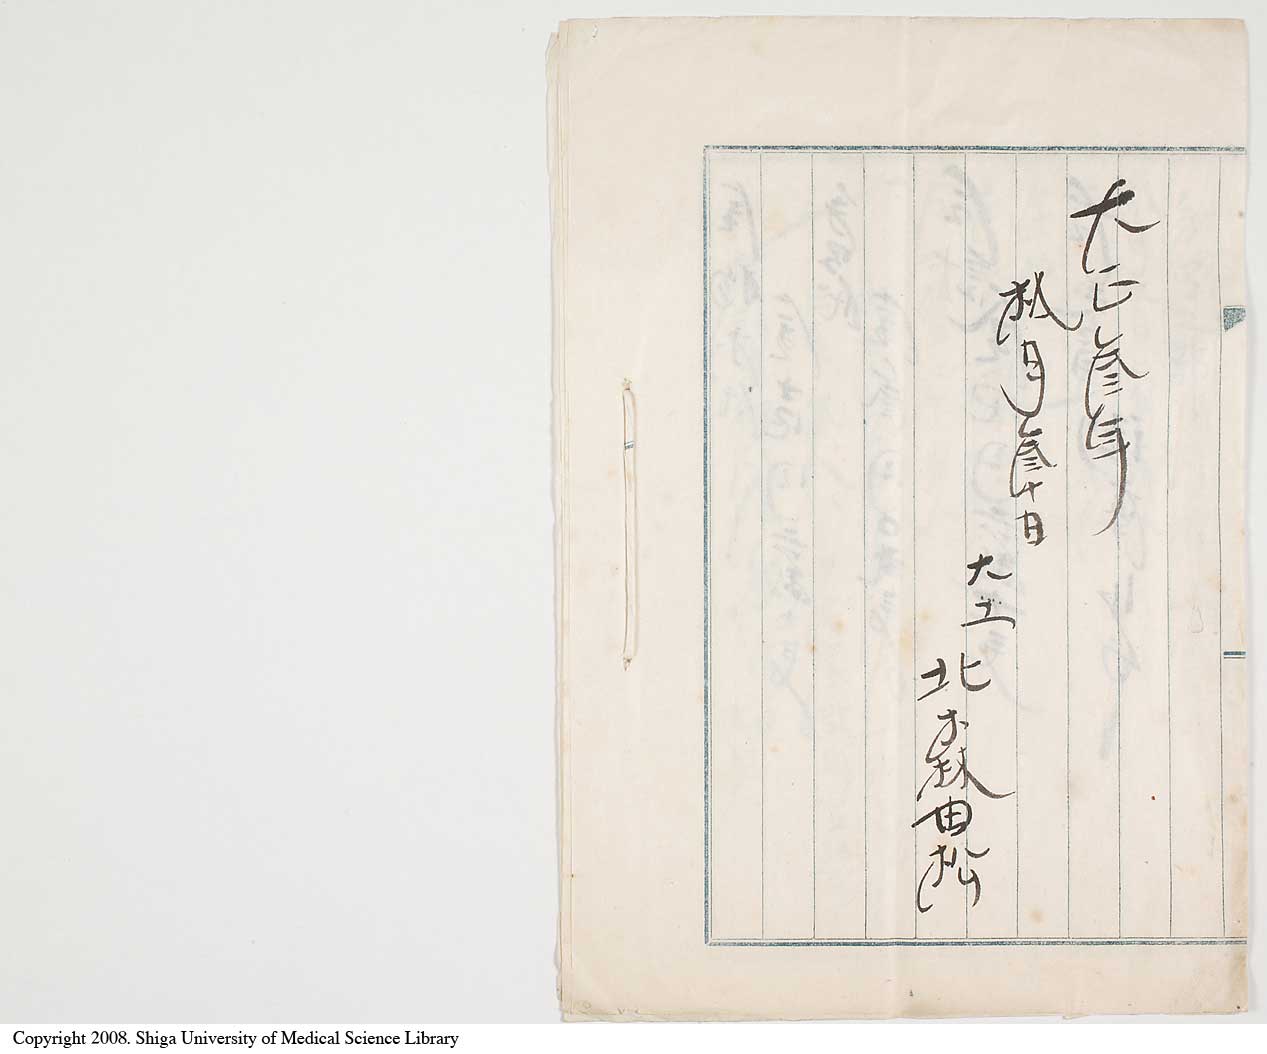 大正参年
拾月参十日
大工
北森由松
Copyright 2008. Shiga University of Medical Science Library